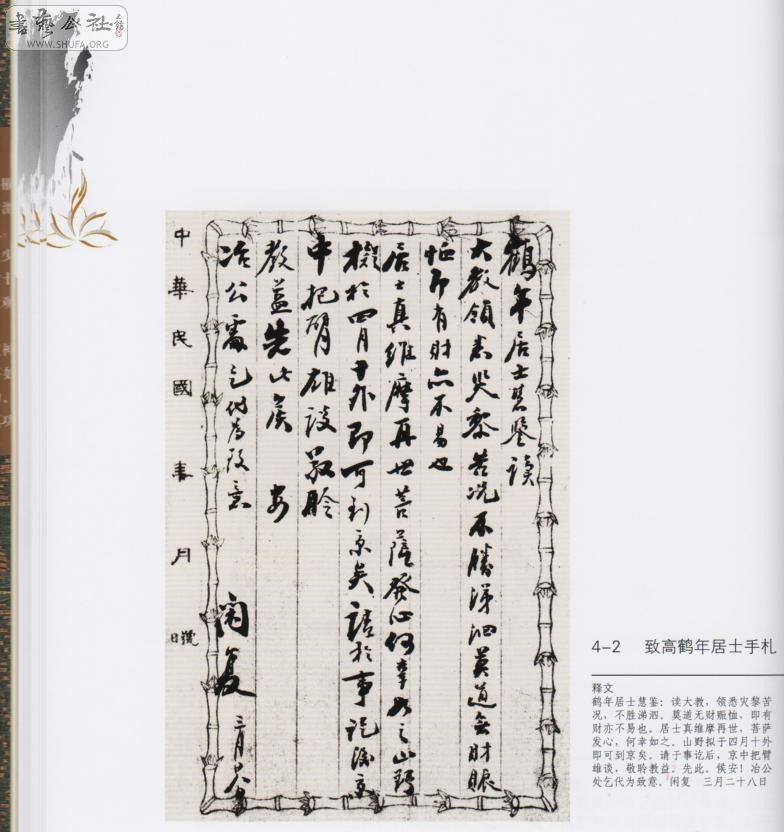 書藝公社
WWW.SHUFA.ORG
鶴年居士慧鑒讀
大教領悉災黎苦况不勝涕泗莫道無財賑
恤即有財亦不易也
居士真維摩再世菩薩發心何幸如之山野
擬於四月十外即可到京矣請於事訖後京
中把臂雄談敬聆
教益先此候 安
冶公處乞代為致意 閑复 三月廿八日
中華民國 年 月 日 號
4-2 致高鹤年居士手札
释文
鹤年居士慧鉴：读大教，领悉灾黎苦
况，不胜涕泗。莫道无财赈恤，即有
财亦不易也。居士真维摩再世，菩萨
发心，何幸如之。山野拟于四月十外
即可到京矣。请于事讫后，京中把臂
雄谈，敬聆教益。先此。候安！冶公
处乞代为致意。闲复 三月二十八日